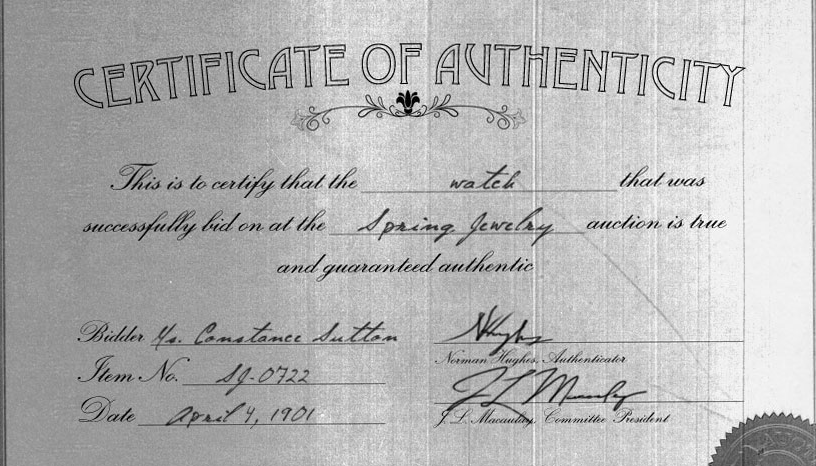 CERTIFICATE OF AUTHENTICITY
This is to certify that the watch that was
successfully bid on at the Spring Jewelry auction is true
and guaranteed authentic
Bidder Ms. Constance Sutton
NHughes
Norman Hughes, Authenticator
Item No. SJ-0722
J L Macaulay
J. L. Macaulay, Committee President
Date April 4, 1901